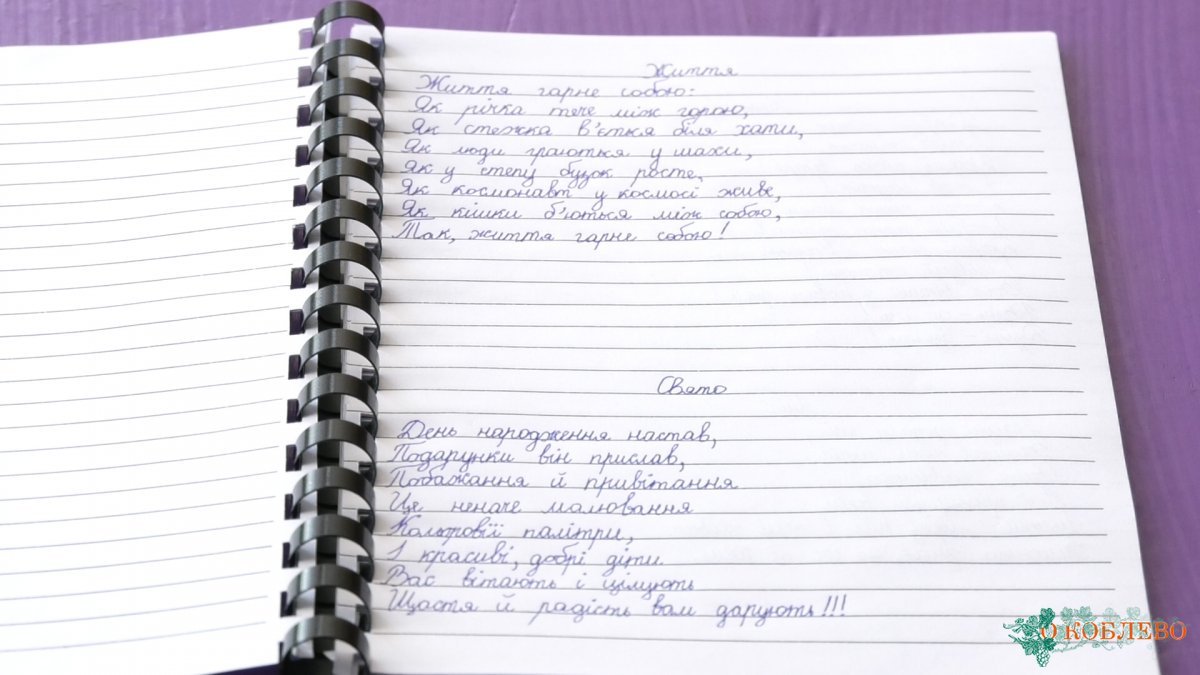 Життя
Життя гарне собою:
Як річка тече між горою,
Як стежка в'ється біля хати,
Як люди граються у шахи,
Як у степу бузок росте,
Як космонавт у космосі живе,
Як кішки б'ються між собою,
Так, життя гарне собою!
Свято
День народження настав,
Подарунки він прислав,
Побажання й привітання
Це неначе малювання
Кольоровії палітри,
І красиві, добрі діти
Вас вітають і цілують
Щастя й радість вам дарують!!!
О КОБЛЕВО